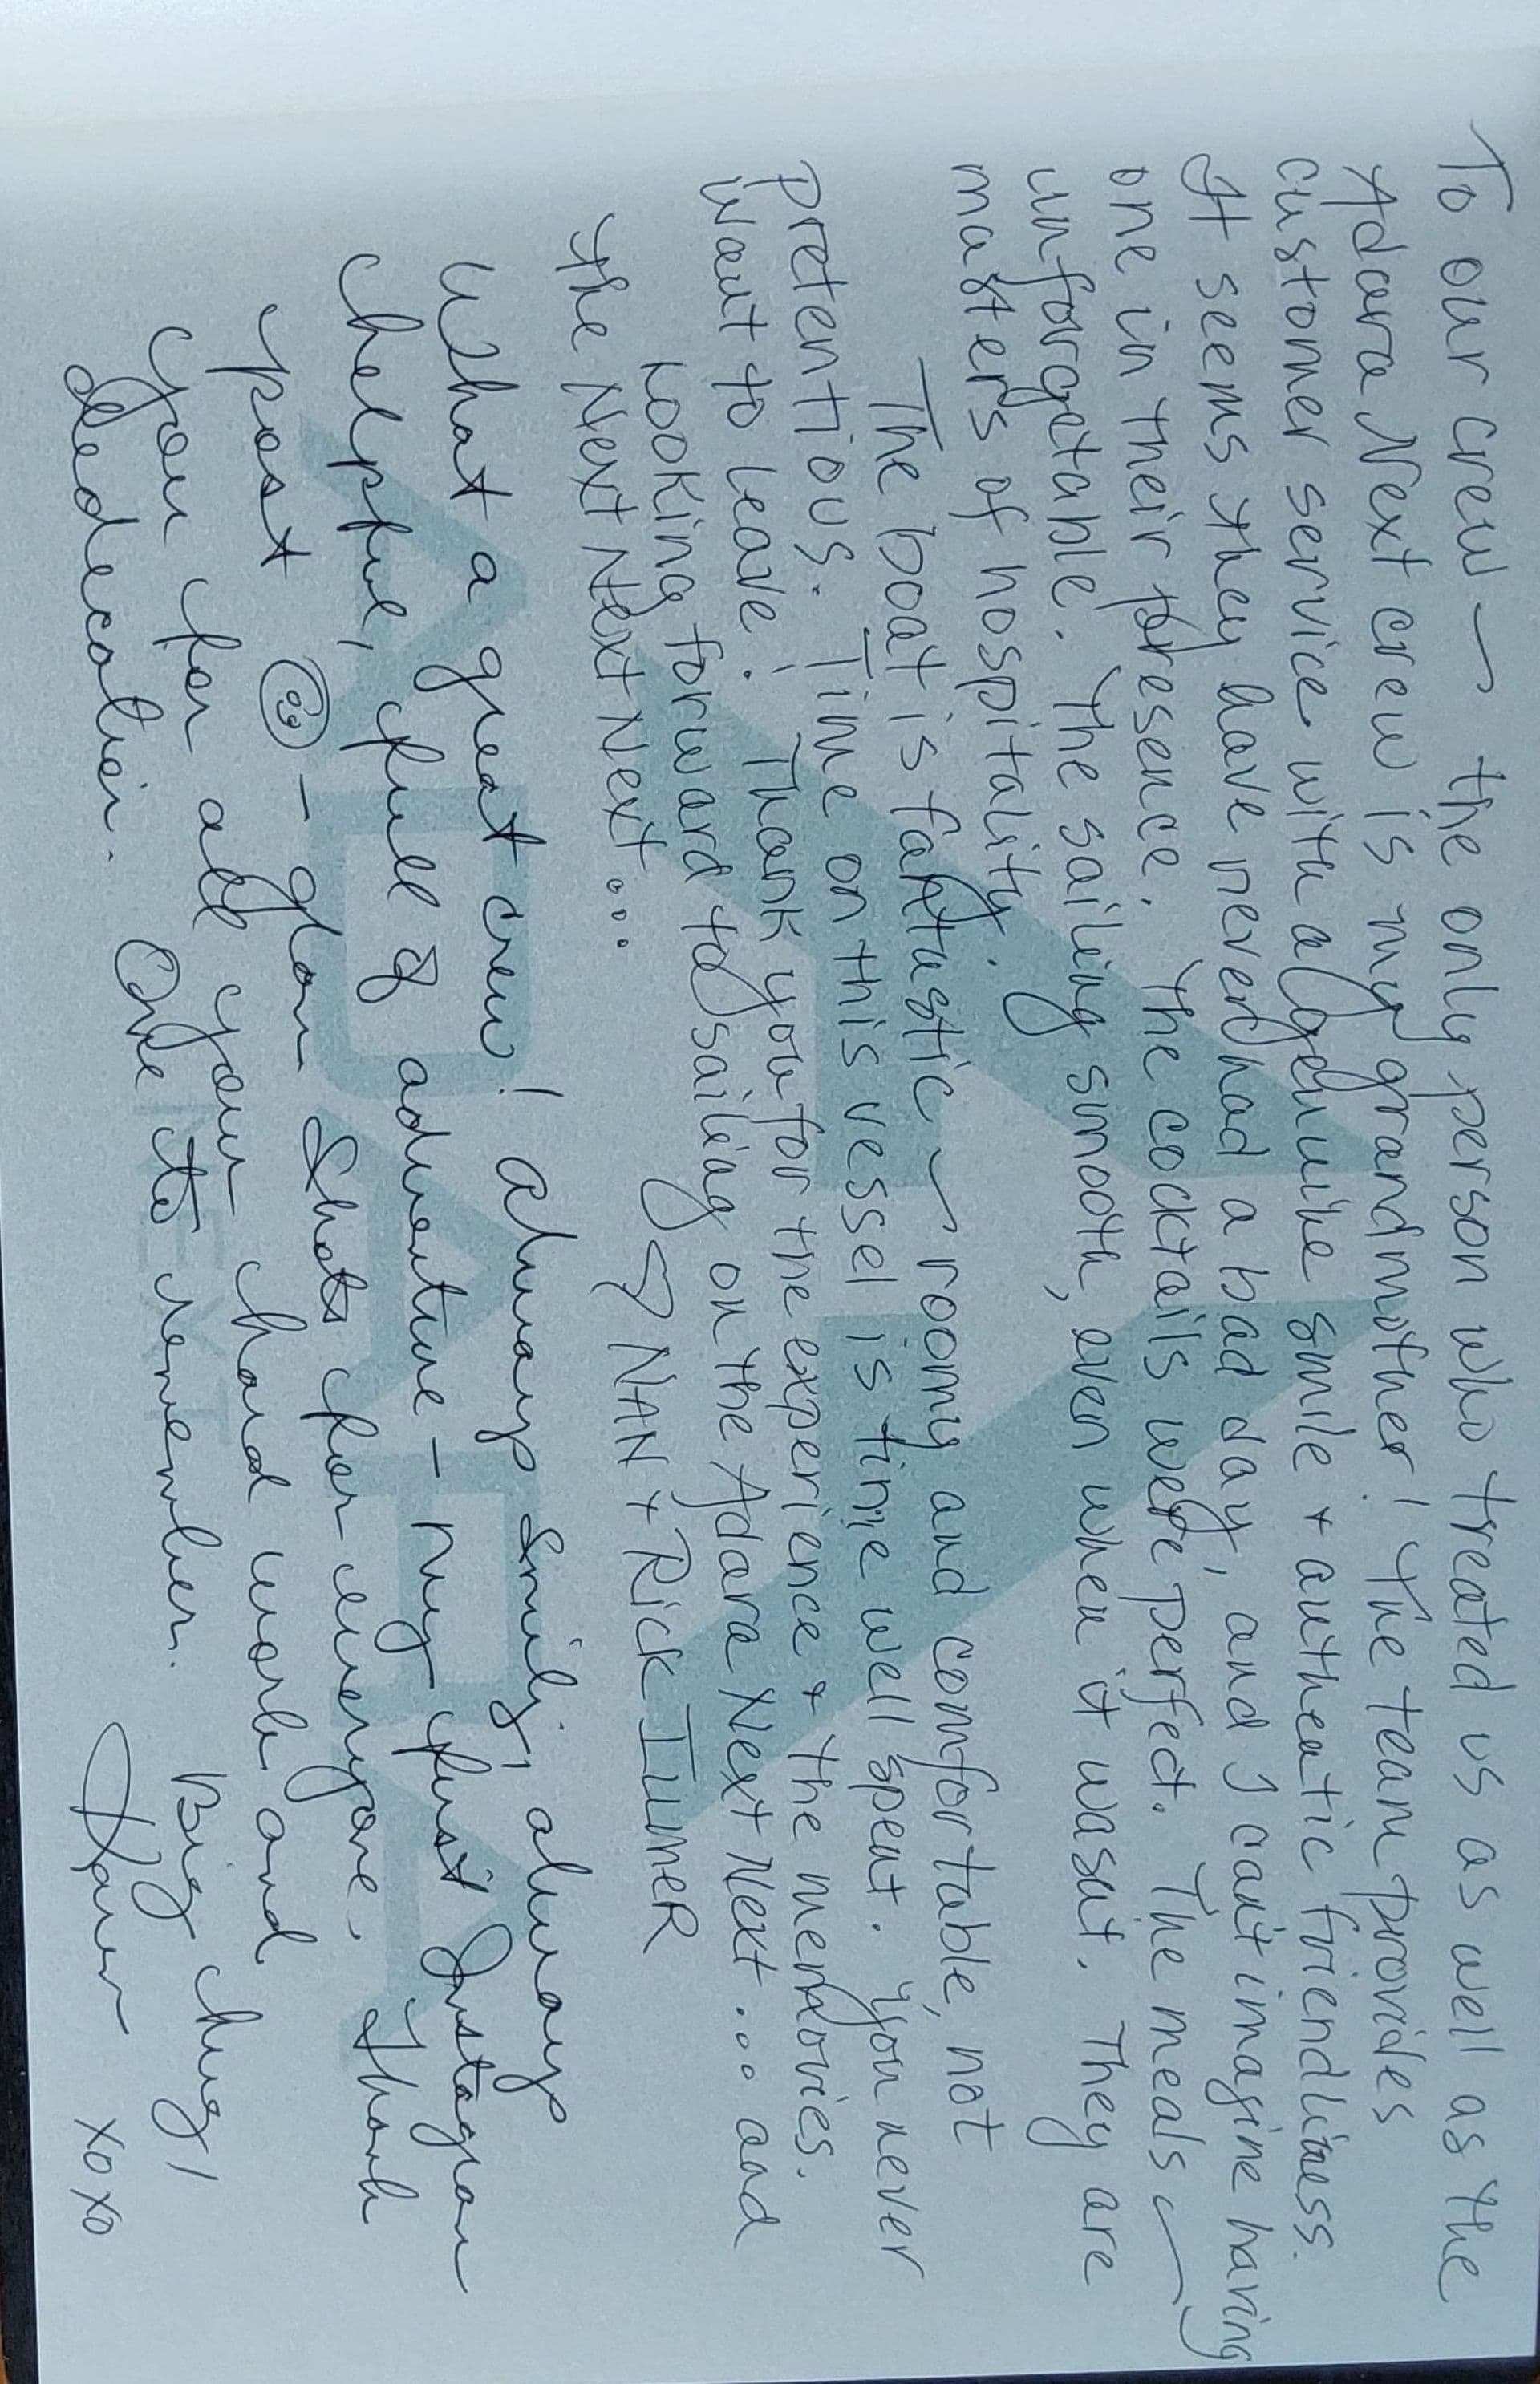 To our crew — the only person who treated us as well as the
Adara Next crew is my grandmother! The team provides
customer service with a genuine smile + authentic friendliness.
It seems they have never had a bad day, and I can't imagine having
one in their presence. The cocktails were perfect. The meals —
unforgetable. The sailing smooth, even when it wasn't. They are
masters of hospitality.
The boat is fantastic — roomy and comfortable, not
pretentious. Time on this vessel is time well spent. You never
want to leave! Thank you for the experience + the memories.
Looking forward to sailing on the Adara Next Next... and
the Next Next Next...
NAN + Rick
What a great crew! Always smily, always
helpful, full of adventure - my first Instagram
post - glam shots for everyone. Thank
you for all your hard work and
dedication. One to remember. Big hug!
xoxo
ADARA
NEXT